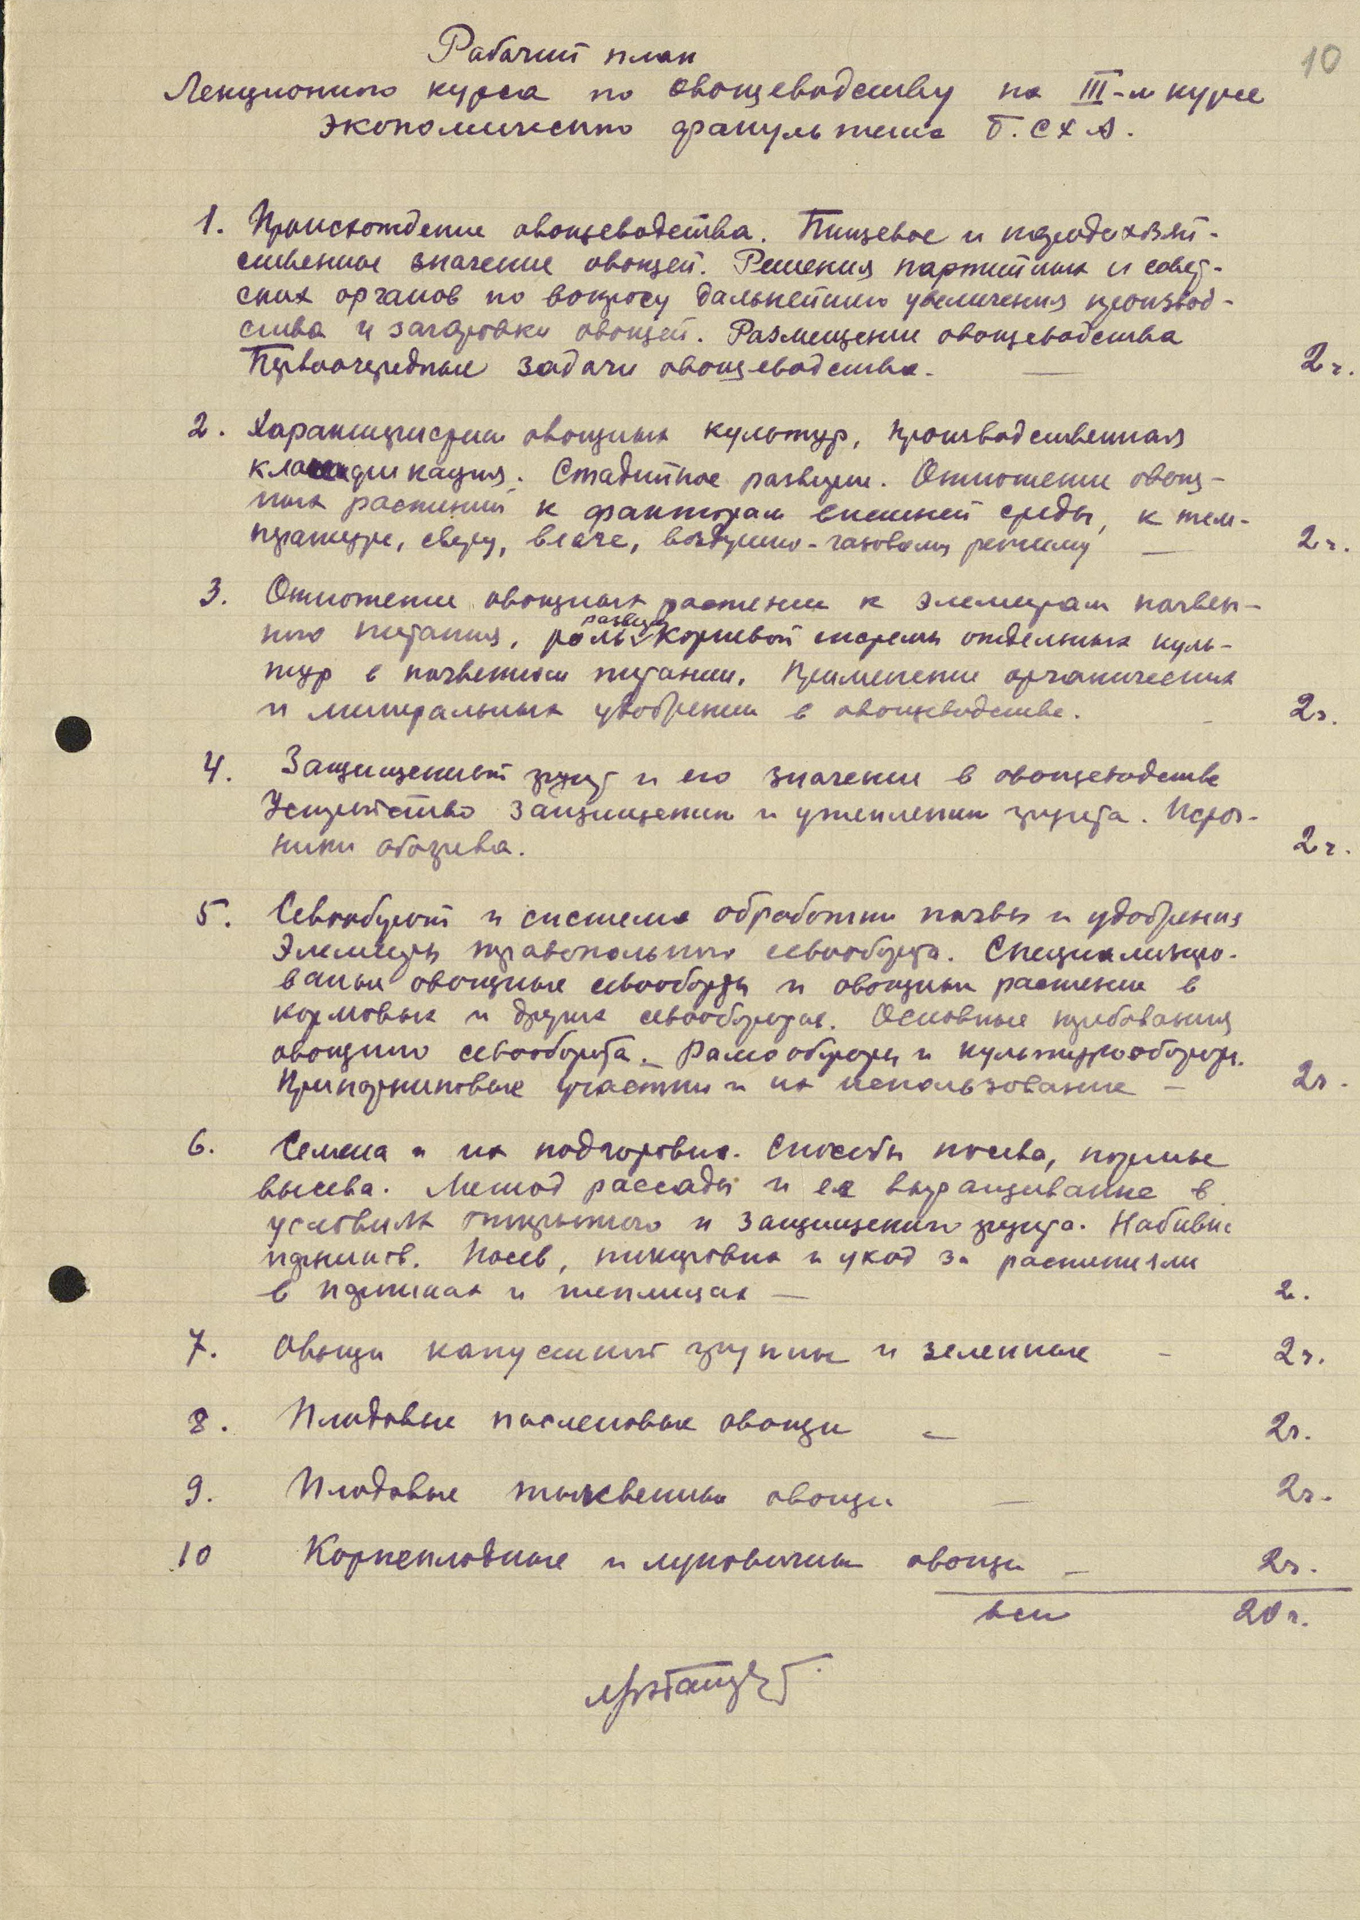 10
Рабочий план
Лекционного курса по овощеводству на III-м курсе
экономического факультета Б.СХА.
1. Происхождение овощеводства. Пищевое и народохозяй-
ственное значение овощей. Решения партийных и совет-
ских органов по вопросу дальнейшего увеличения производ-
ства и заготовки овощей. Размещение овощеводства
Первоочередные задачи овощеводства. — 2ч.
2. Характеристика овощных культур, производственная
классификация. Стадийное развитие. Отношение овощ-
ных растений к факторам внешней среды, к тем-
пературе, свету, влаге, воздушно-газовому режиму — 2ч.
3. Отношение овощных растений к элементам почвен-
ного питания, роль развития корневой системы отдельных куль-
тур в почвенном питании. Применение органических
и минеральных удобрений в овощеводстве. - 2ч.
4. Защищенный грунт и его значение в овощеводстве
Устройство защищенного и утепленного грунта. Источ-
ники обогрева. 2ч.
5. Севооборот и система обработки почвы и удобрения
Элементы травопольного севооборота. Специализиро-
ванные овощные севообороты и овощные растения в
кормовых и других севооборотах. Основные требования
овощного севооборота. Рамообороты и культурообороты.
Припарниковые участки и их использование — 2ч.
6. Семена и их подготовка. Способы посева, нормы
высева. Метод рассады и ее выращивание в
условиях открытого и защищенного грунта. Набивка
парников. Посев, пикировка и уход за растениями
в парниках и теплицах — 2.
7. Овощи капустной группы и зеленные - 2ч.
8. Плодовые пасленовые овощи — 2ч.
9. Плодовые тыквенные овощи — 2ч.
10 Корнеплодные и луковичные овощи — 2ч.
всего 20 ч.